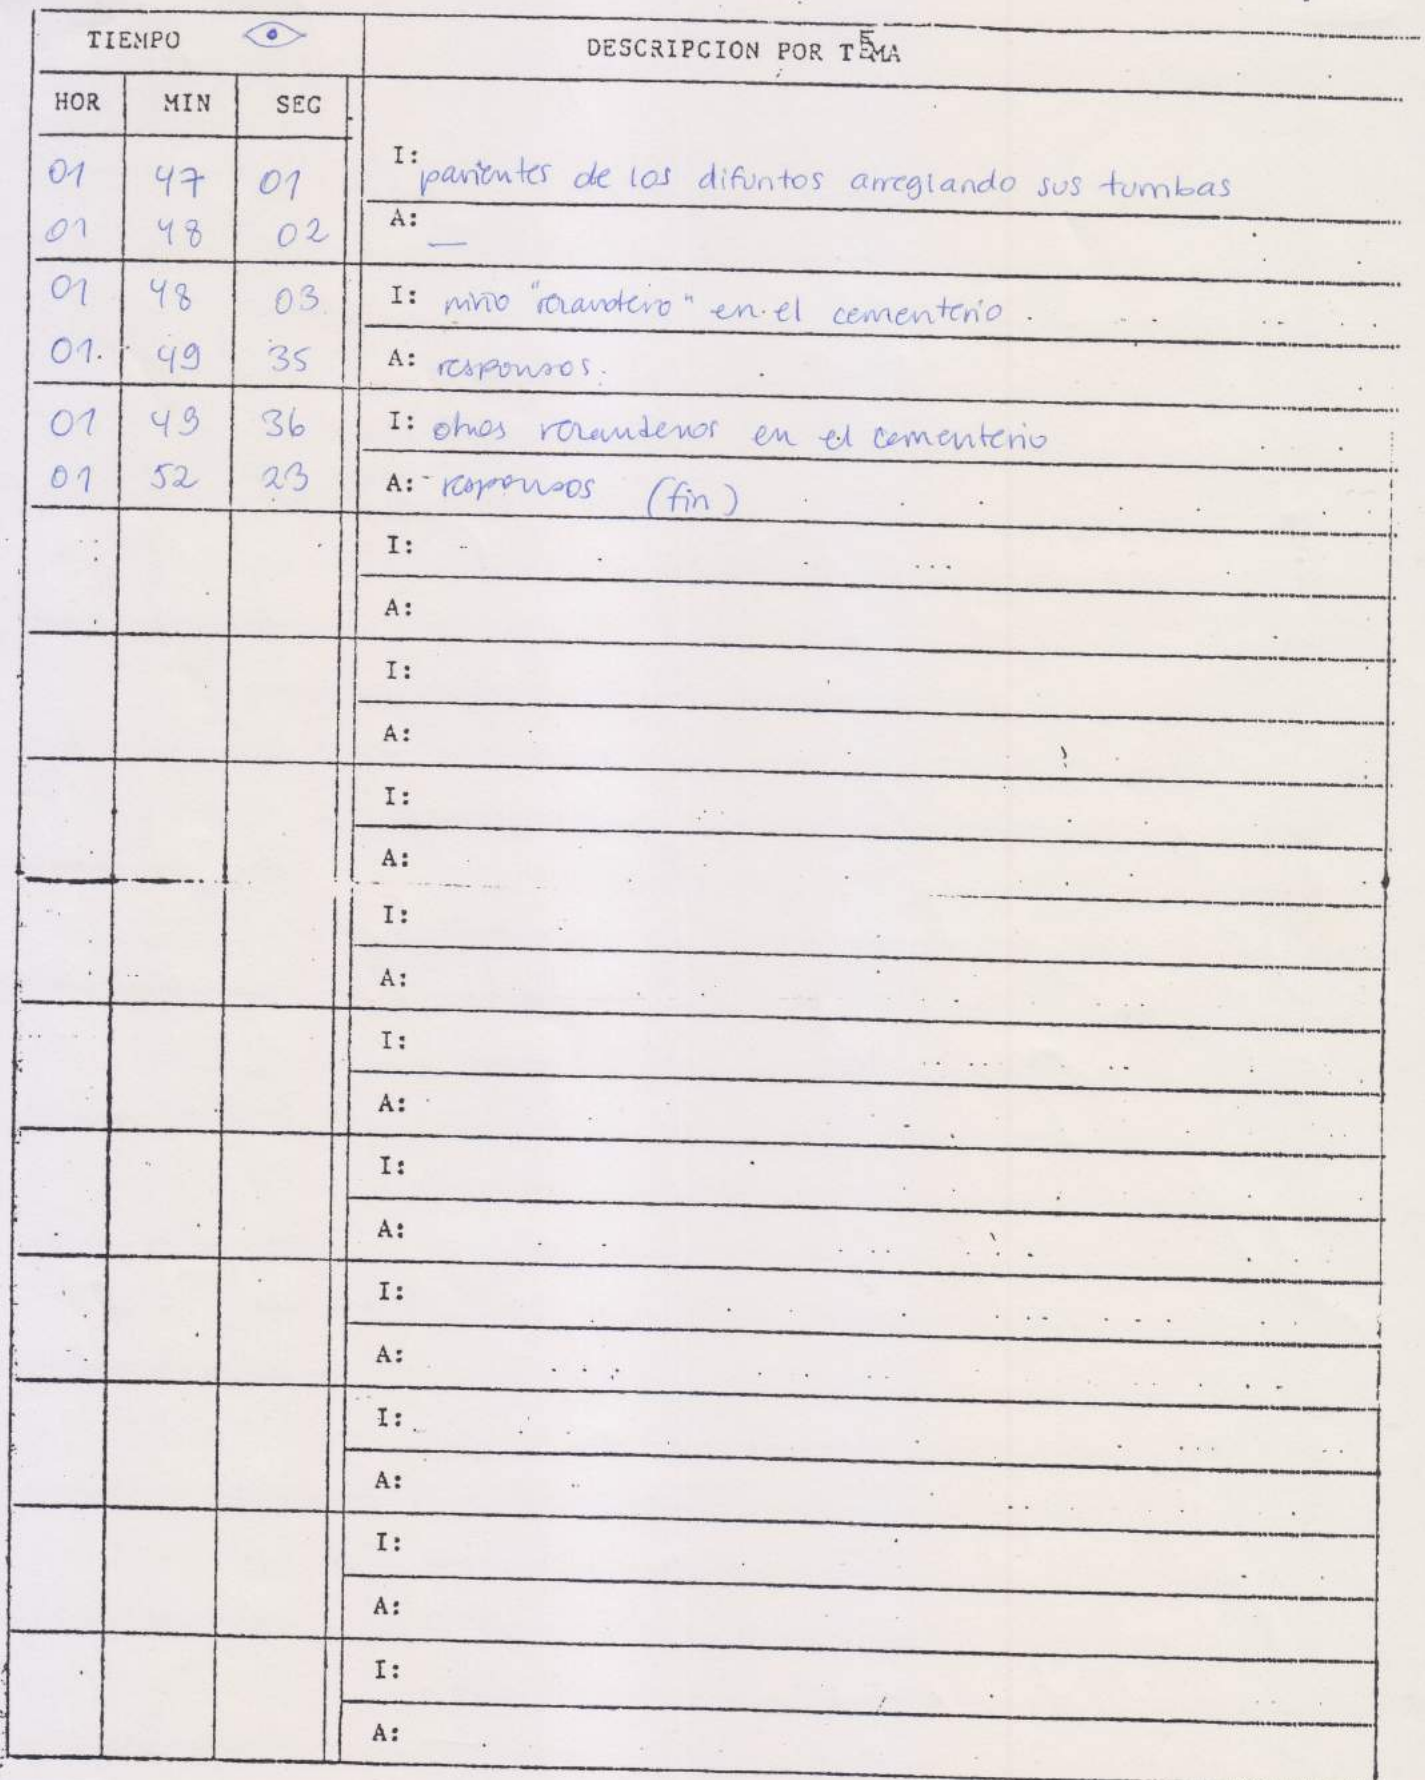 TIEMPO DESCRIPCION POR TEMA
HOR MIN SEG
I: parientes de los difuntos arreglando sus tumbas
01 47 01
A: —
01 48 02
01 48 03 I: niño "rezandero" en el cementerio.
01. 49 35 A: responsos.
01 49 36 I: otros rezanderos en el cementerio
01 52 23 A: responsos (fin)
I:
A:
I:
A:
I:
A:
I:
A:
I:
A:
I:
A:
I:
A:
I:
A:
I:
A:
I:
A: